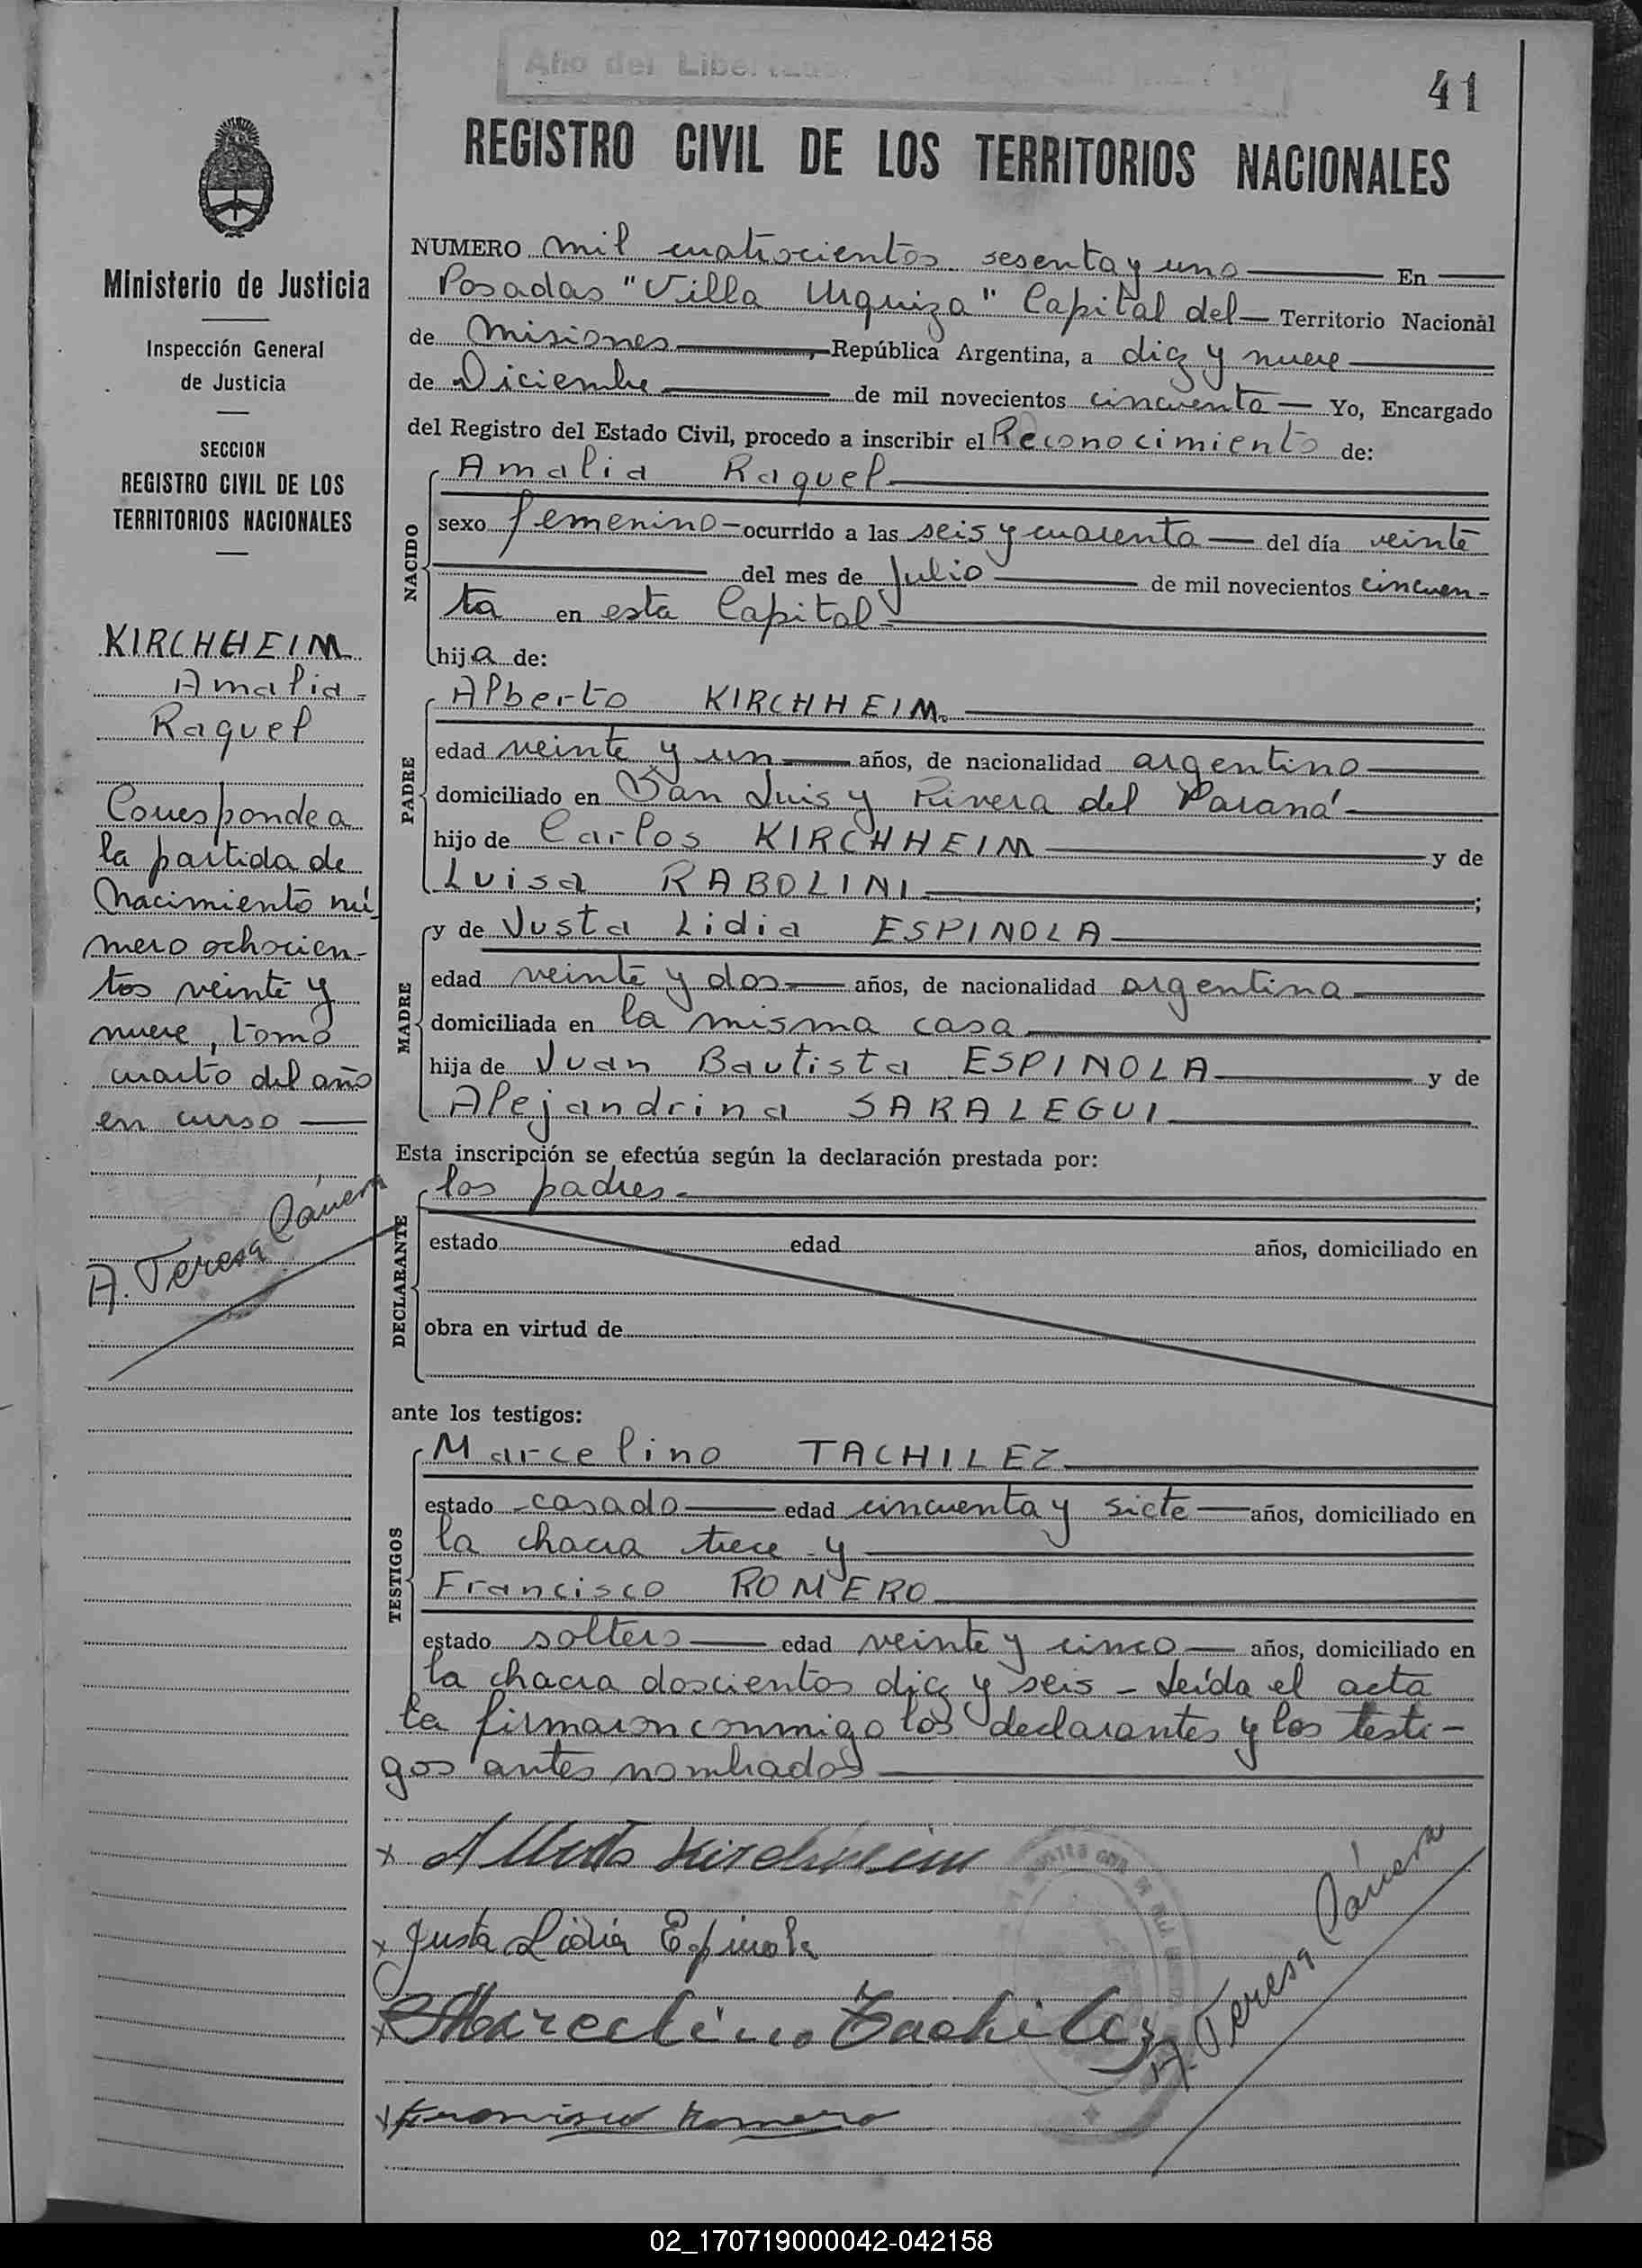 Año del Libertador
41
REGISTRO CIVIL DE LOS TERRITORIOS NACIONALES
Ministerio de Justicia
Inspección General
de Justicia
SECCION
REGISTRO CIVIL DE LOS
TERRITORIOS NACIONALES
KIRCHHEIM
Amalia
Raquel
Corresponde a
la partida de
nacimiento nú
mero ochocien-
tos veinte y
nueve, tomo
cuarto del año
en curso
A. Teresa
NUMERO mil cuatrocientos sesenta y uno En
Posadas "Villa Urquiza" Capital del Territorio Nacional
de Misiones, República Argentina, a diez y nueve
de Diciembre de mil novecientos cincuenta Yo, Encargado
del Registro del Estado Civil, procedo a inscribir el Reconocimiento de:
NACIDO
Amalia Raquel
sexo femenino ocurrido a las seis y cuarenta del día veinte
del mes de Julio de mil novecientos cincuen-
ta en esta Capital
hija de:
PADRE
Alberto KIRCHHEIM.
edad veinte y un años, de nacionalidad argentino
domiciliado en San Luis y Rivera del Paraná
hijo de Carlos KIRCHHEIM y de
Luisa RABOLINI;
MADRE
y de Justa Lidia ESPINOLA
edad veinte y dos años, de nacionalidad argentina
domiciliada en la misma casa
hija de Juan Bautista ESPINOLA y de
Alejandrina SARALEGUI
Esta inscripción se efectúa según la declaración prestada por:
DECLARANTE
los padres.
estado edad años, domiciliado en
obra en virtud de
ante los testigos:
TESTIGOS
Marcelino TACHILEZ
estado casado edad cincuenta y siete años, domiciliado en
la chacra trece y
Francisco ROMERO
estado soltero edad veinte y cinco años, domiciliado en
la chacra doscientos diez y seis - Leída el acta
la firmaron conmigo los declarantes y los testi-
gos antes nombrados
x Alberto Kirchheim
x Justa Lidia Espinola
x Marcelino Tachilez
A. Teresa
x Francisco Romero
02_170719000042-042158